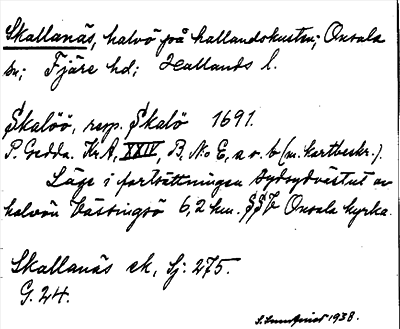 Skallanäs, halvö på hallandskusten; Onsala
sn; Fjäre hd; Hallands l.
Skalöö, resp. Skalö 1691.
P. Gedda. Kr. A, XXIV, B, No E, a o. b (m. kartbeskr.).
Läge i fortsättningen sydsydvästut av
halvön Vässingsö 6,2 km. SSV Onsala kyrka.
Skallanäs ek, Sj: 275.
G. 24.
S. 1938.